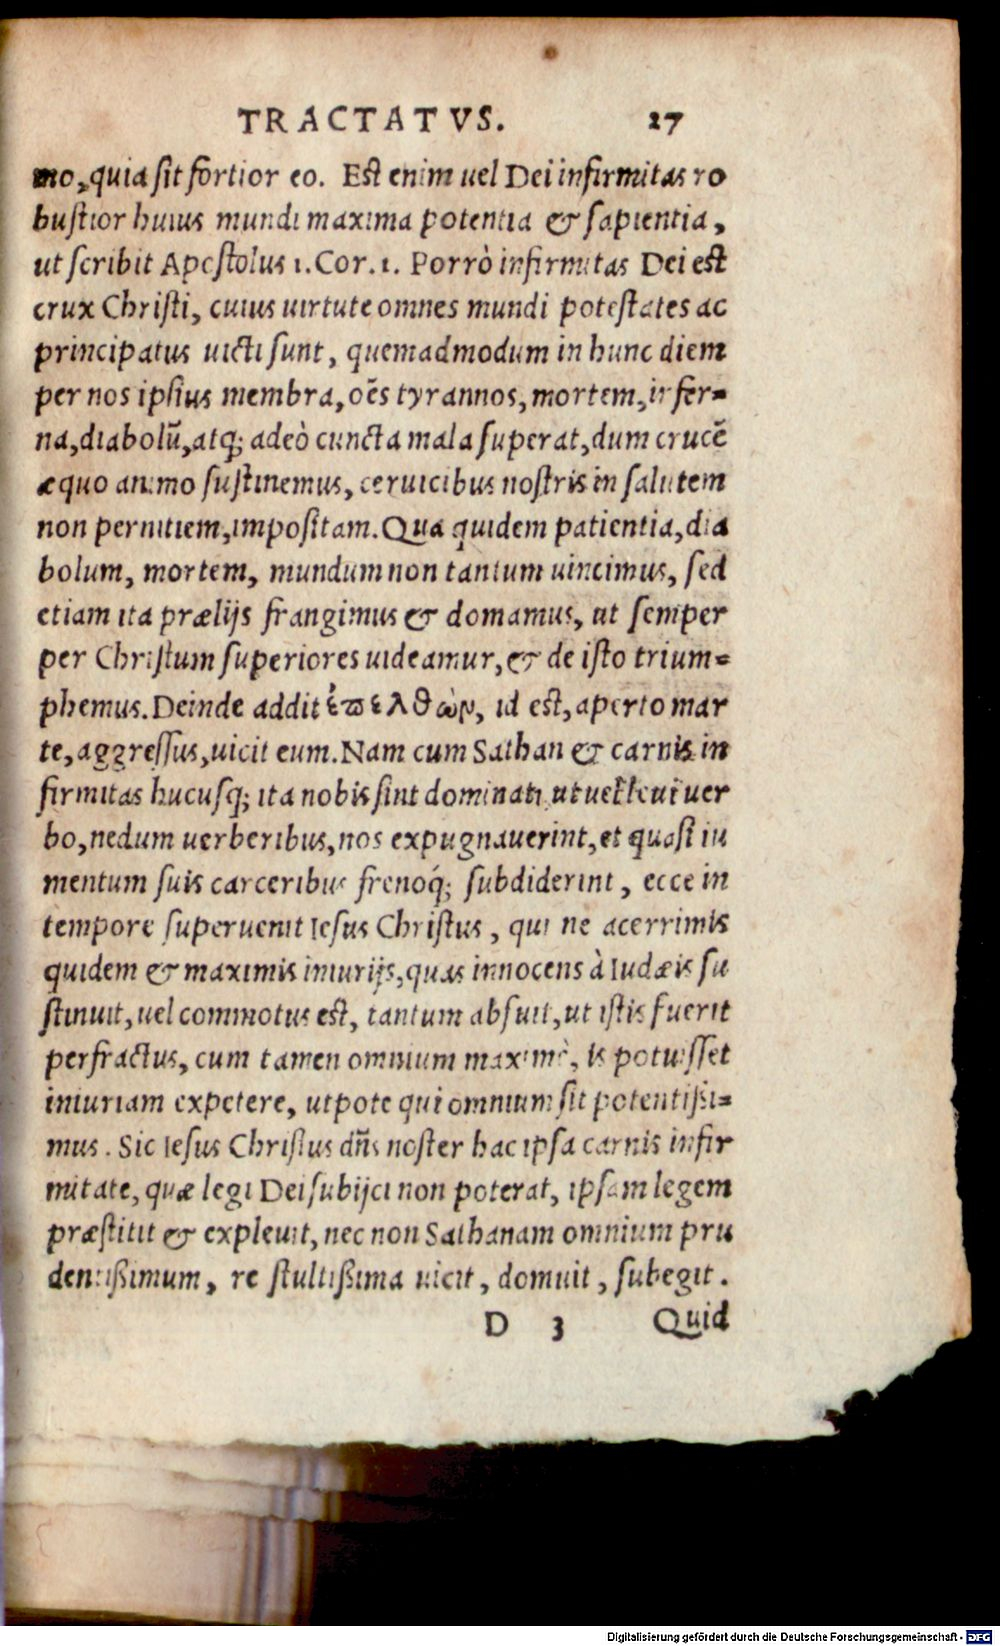 TRACTATVS. 27
mo, quia sit fortior eo. Est enim uel Dei infirmitas ro
bustior huius mundi maxima potentia & sapientia,
ut scribit Apostolus 1. Cor. 1. Porrò infirmitas Dei est
crux Christi, cuius uirtute omnes mundi potestates ac
principatus uicti sunt, quemadmodum in hunc diem
per nos ipsius membra, oēs tyrannos, mortem, infer=
na, diabolū, atq; adeò cuncta mala superat, dum crucē
æquo animo sustinemus, ceruicibus nostris in salutem
non pernitiem, impositam. Qua quidem patientia, dia
bolum, mortem, mundum non tantum uincimus, sed
etiam ita prælijs frangimus & domamus, ut semper
per Christum superiores uideamur, & de isto trium=
phemus. Deinde addit ἐπελθὼν, id est, aperto mar
te, aggressus, uicit eum. Nam cum Sathan & carnis in
firmitas hucusq; ita nobis sint dominati ut uel leui uer
bo, nedum uerberibus, nos expugnauerint, et quasi iu
mentum suis carceribus frenoq́; subdiderint, ecce in
tempore superuenit Iesus Christus, qui ne acerrimis
quidem & maximis iniurijs, quas innocens à Iudæis su
stinuit, uel commotus est, tantum absuit, ut istis fuerit
perfractus, cum tamen omnium maximè, is potuisset
iniuriam expetere, utpote qui omnium sit potentißi=
mus. Sic Iesus Christus dn̄s noster hac ipsa carnis infir
mitate, quæ legi Dei subijci non poterat, ipsam legem
præstitit & expleuit, nec non Sathanam omnium pru
dentißimum, re stultißima uicit, domuit, subegit.
D 3 Quid
Digitalisierung gefördert durch die Deutsche Forschungsgemeinschaft - DFG